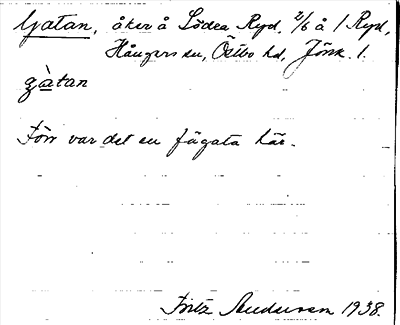 Gatan, åker å Södra Ryd, 2/6 å 1 Ryd,
Hångers sn, Östbo hd, Jönk. l.
gàtan
Förr var det en fägata här.
Fritz Andersson 1938.